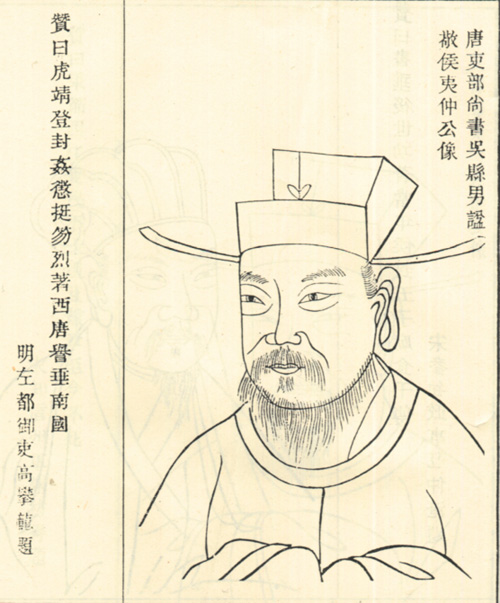 唐吏部尚書吳縣男諡
敬侯夷仲公像
贊曰虎靖登封姦憝挺笏烈著西唐譽垂南國
明左都御史高攀龍題